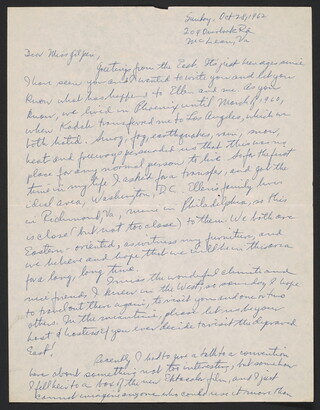 Sunday, Oct 28, 1962
209 Dunbrook Rd.
McLean, Va
Dear Miss
Greetings from the East. Its just been ages since
I have seen you and I wanted to write you and let you
know what has happened to Ellen and me. As you
know, we lived in Phoenix until March, 1960,
when Kodak transferred me to Los Angeles, which we
both hated. Smog, fog, earthquakes, rain, snow,
heat and freeways persuaded us that this was no
place for any normal person to live. So for the first
time in my life I asked for a transfer, and got the
ideal area, Washington, D.C. Ellen's family lives
in Richmond, Va, mine in Philadelphia, so this
is close (but not too close) to them. We both are
Eastern-oriented, as witness my furniture, and
we believe and hope that we will be in this area
for a long, long time.
I miss the wonderful climate and
nice friends I knew in the West so someday I hope
to travel out there again, to visit you and one or two
others. In the meantime, please let us be your
host & hostess if you ever decide to visit this
East!
Recently I had to give a talk to a convention
here about something not too interesting, but somehow
I fell heir to a box of the new Ektacolor film, and I just
cannot imagine anyone who could use it more than